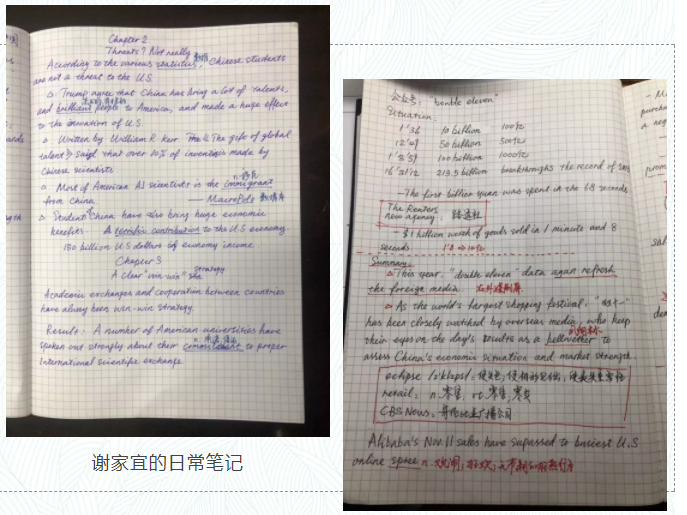 Chapter 2
Threats? Not really
According to the various statistics, 数据 Chinese students
are not a threat to the U.S.
△ Trump agree that China has bring a lot of talents,
and brilliant people to America, and made a huge effect
to the innovation of U.S.
△ Written by William R kerr 《The gift of global
talent》 said that over 10% of inventions made by
Chinese scientists
△ Most of American AI scientists is the immigrant n.移民
from China —— MacroPolo 数据库
△ Student China have also bring huge economic
benefits. A terrific contribution to the U.S economy.
150 billion U.S dollars of economy income
Chapter 3
A clear "win-win" strategy
Academic exchanges and cooperation between countries
have always been win-win strategy.
Result: A number of American universities have
spoken out strongly about their commitment to proper
International scientific exchange.
谢家宜的日常笔记
公众号: "double eleven"
Situation:
1'36 10 billion 100亿
12'49 50 billion 500亿
1°3'59 100 billion 1000亿
16°31'12 213.5 billion breakthroughs the record of
—The first billion yuan was spent in the 68 seconds
The Reuters
news agency: 路透社
— $1 billion worth of goods sold in 1 minute and 8
seconds 1'8 => 10亿
Summary:
△ This year, "double eleven" data again refresh
the foreign media. 在外媒刷屏
△ As the world's largest shopping festival, "双十一"
has been closely watched by overseas media, who keep
their eyes on the day's results as a bellwether to
assess China's economic situation and market strength.
eclipse /ɪ'klɪps/:
retail: n.零售, vt.零售, 零卖
CBS News: 哥伦比亚广播公司
Alibaba's Nov. 11 sales have supassed to busiest U.S
online spree n.